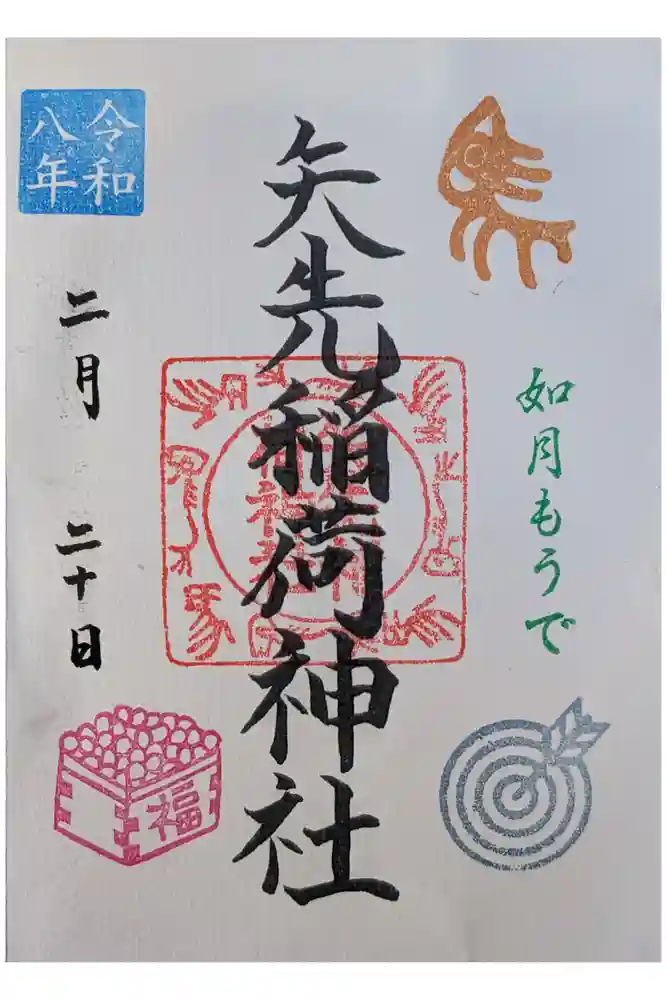 如月もうで
矢先稲荷神社
令和
八年
二月 二十日
福